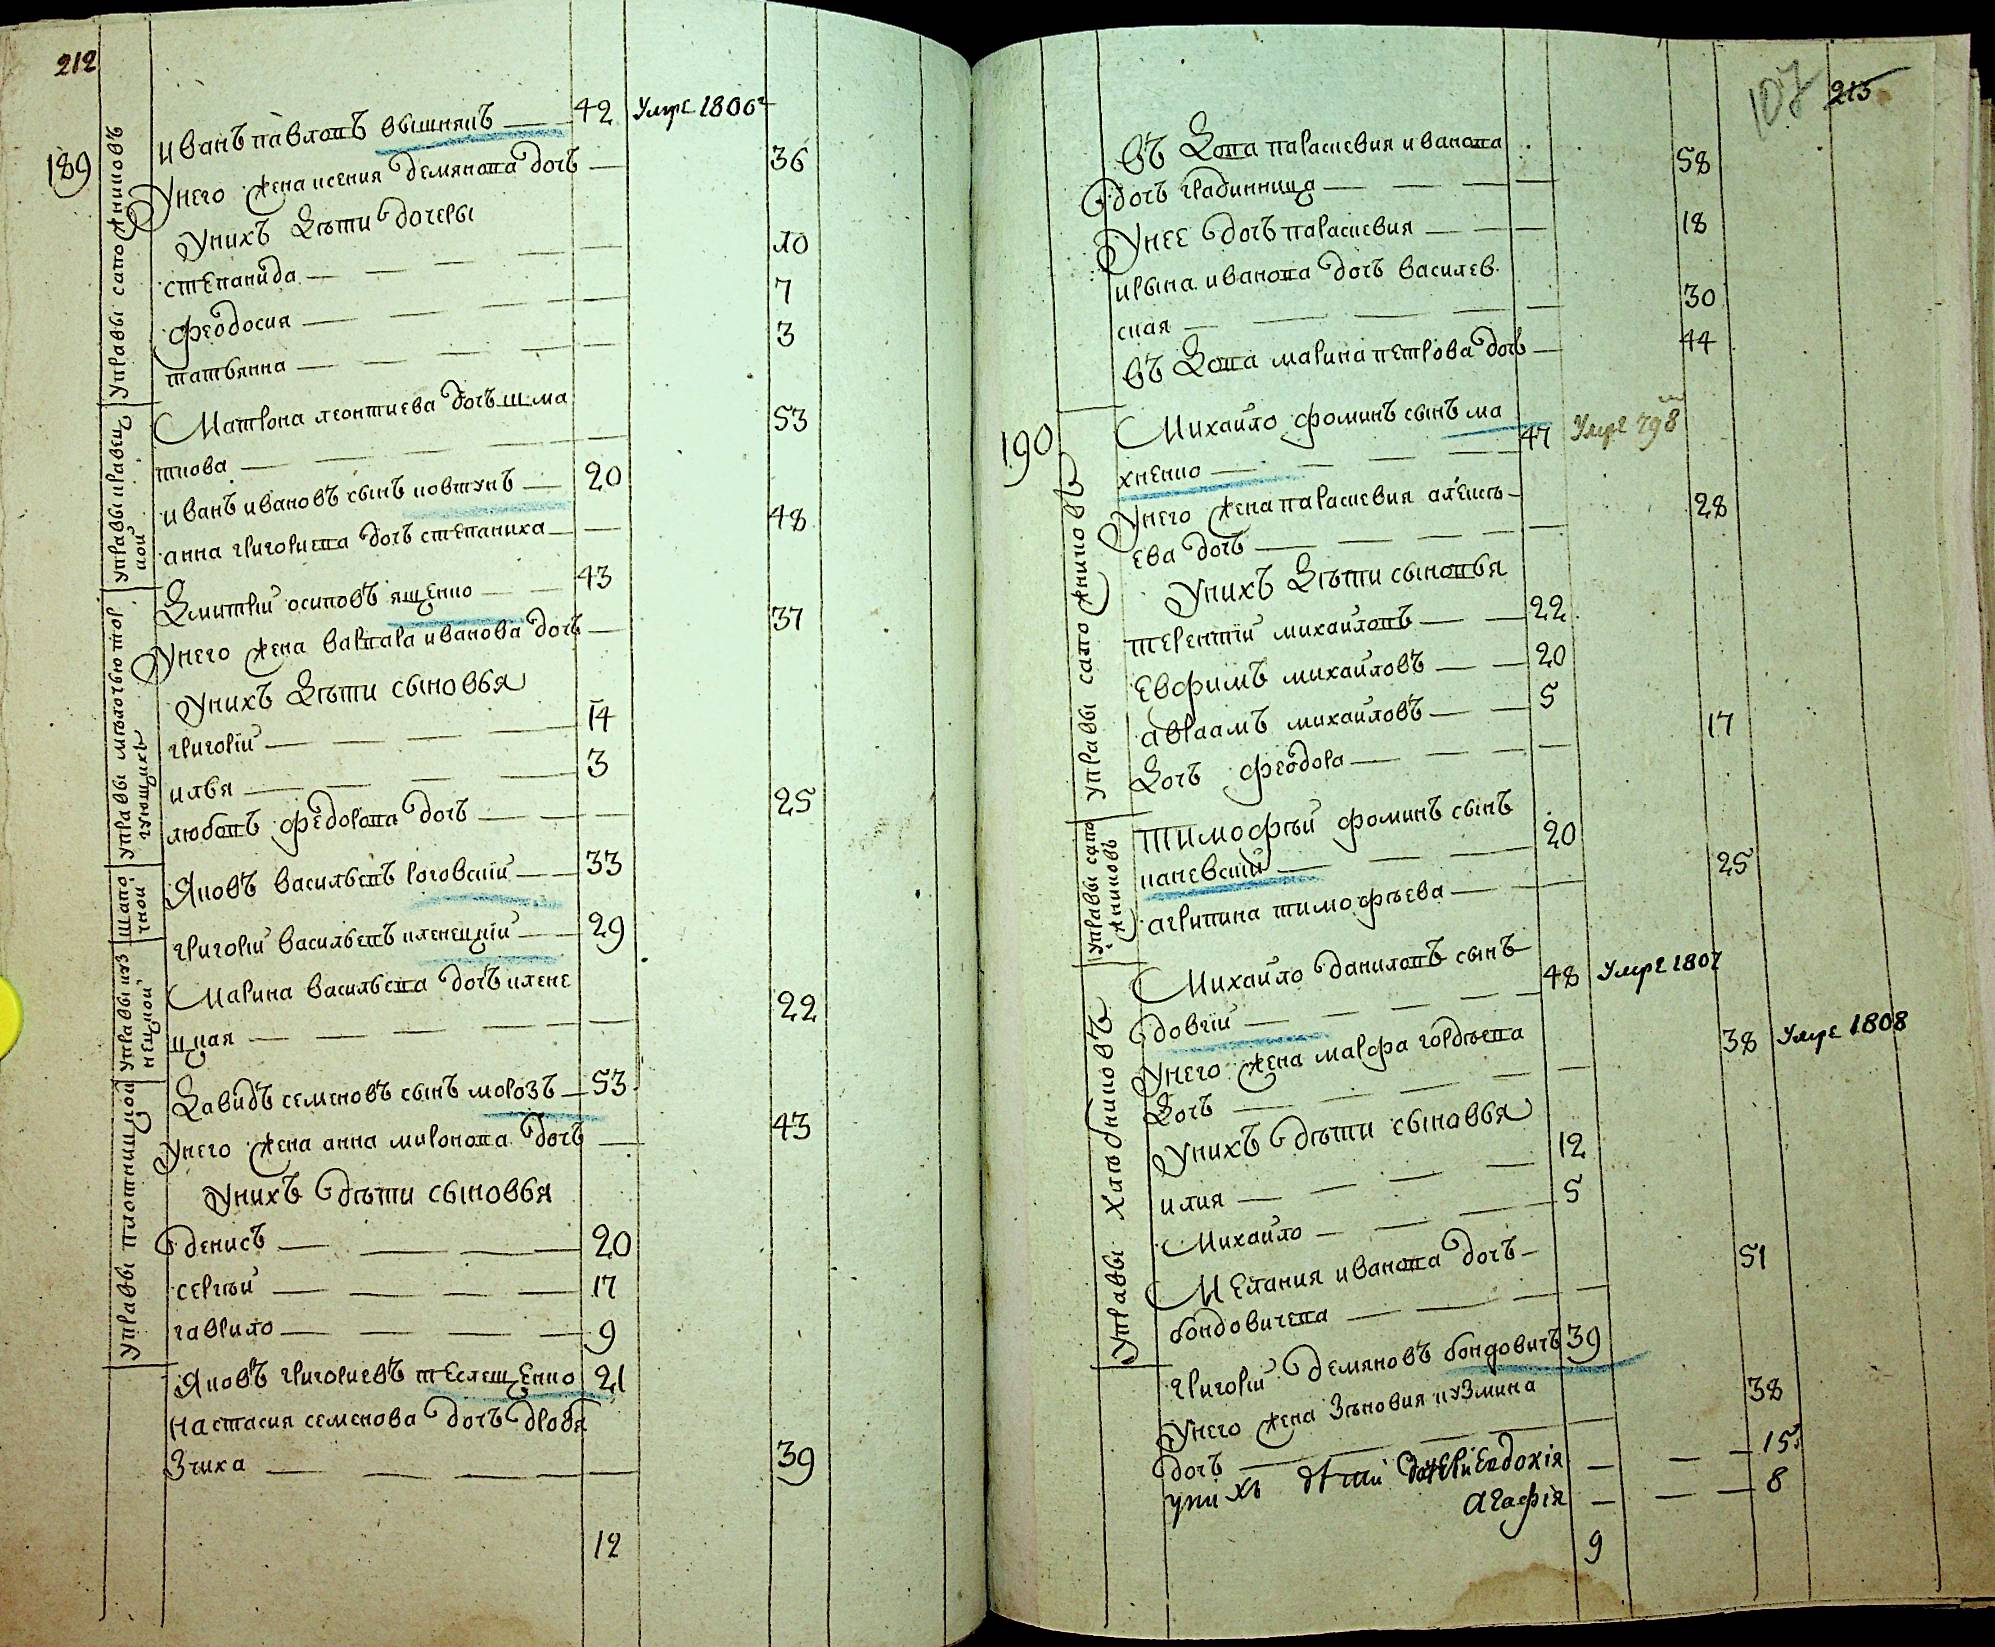 212
189
Управы сапожниковъ
иванъ павловъ вышнякъ — 42 умре 1806г
унего жена ксения демянова дочь — 36
унихъ дѣти дочеры
степанида — 10
феодосия — 7
татьянна — 3
управы кравецкой
Матрона леонтиева дочь шма
ткова — 53
иванъ ивановъ сынъ ковтунъ — 20
анна григориева дочь степаниха — 48
управы мѣлочью торгующихъ
дмитрій осиповъ ященко — 43
унего жена варвара иванова дочь — 37
унихъ дѣти сыновья
григорій — 14
илья — 3
любовъ федорова дочь — 25
шапочной
яковъ васильевъ роговскій — 33
управы кузнецкой
григорій васильевъ кленецкій — 29
Марина васильева дочь клене
цкая — 22
управы плотницкой
давидъ семеновъ сынъ морозъ — 53
унего жена анна миронова дочь — 43
унихъ дѣти сыновья
денисъ — 20
сергѣй — 17
гаврило — 9
яковъ григориевъ теслещенко 21
настасия семенова дочь дробя
зчиха — 39
12
107 213
въдова параскевия иванова
дочь градинница — 58
унее дочь параскевия — 18
ирына иванова дочь василев
ская — 30
въдова марина петрова дочь — 44
190
управы сапожниковъ
Михайло фоминъ сынъ ма
хненко — 47 умре 798
унего жена параскевия алексѣ
ева дочь — 28
унихъ дѣти сыновья
терентій михайловъ — 22
евфимъ михайловъ — 20
авраамъ михайловъ — 5
дочь феодора — 17
управы сапожниковъ
тимофѣй фоминъ сынъ
каневскій — 20
агрипина тимофѣева — 25
управы хлѣбниковъ
Михайло даниловъ сынъ
довгій — 48 умре 1807
унего жена марфа гордѣева
дочь — 38 умре 1808
унихъ дѣти сыновья
илия — 12
Михайло — 5
Мелания иванова дочь
бондовичева — 51
григорій демяновъ бондовичъ 39
унего жена зѣновия кузмина
дочь — 38
унихъ дѣти дочери евдокія — 15
агафія — 8
9